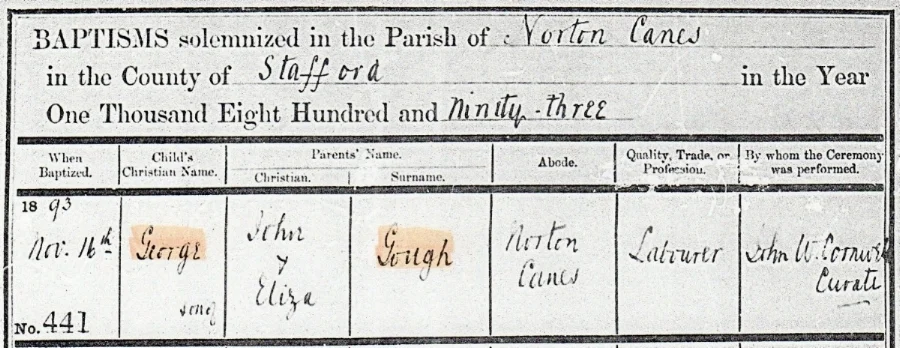 BAPTISMS solemnized in the Parish of Norton Canes
in the County of Stafford in the Year
One Thousand Eight Hundred and Ninity-three
When Baptized.
Child's Christian Name.
Parents' Name.
Christian.
Surname.
Abode.
Quality, Trade, or Profession.
By whom the Ceremony was performed.
1893
Nov. 16th
No. 441
George
son of
John
&
Eliza
Gough
Norton
Canes
Labourer
John W. Cornwell
Curate